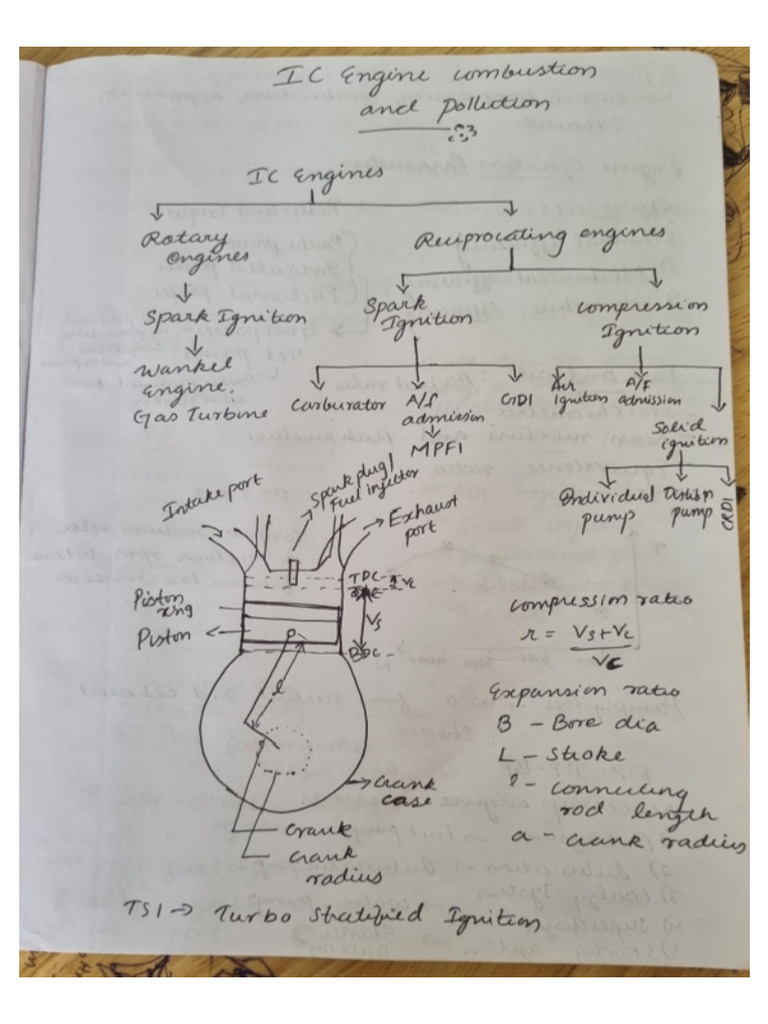 IC Engine combustion
and pollution
IC Engines
Rotary
Engines
Reciprocating engines
Spark Ignition
Spark
Ignition
Compression
Ignition
Wankel
Engine,
Gas Turbine
Carburator
A/f
admission
GDI
Air
ignition
A/F
admission
MPFI
Solid
ignition
Individual
pump
pump
CRDI
Intake port
Spark plug/
Fuel injector
Exhaust
port
TDC
Vc
Vs
BDC
Piston
ring
Piston
P
l
Compression ratio
r = Vs+Vc
Vc
Expansion ratio
B - Bore dia
L - Stroke
l - connecting
rod length
a - crank radius
Crank
case
Crank
Crank
radius
TSI → Turbo Stratified Ignition